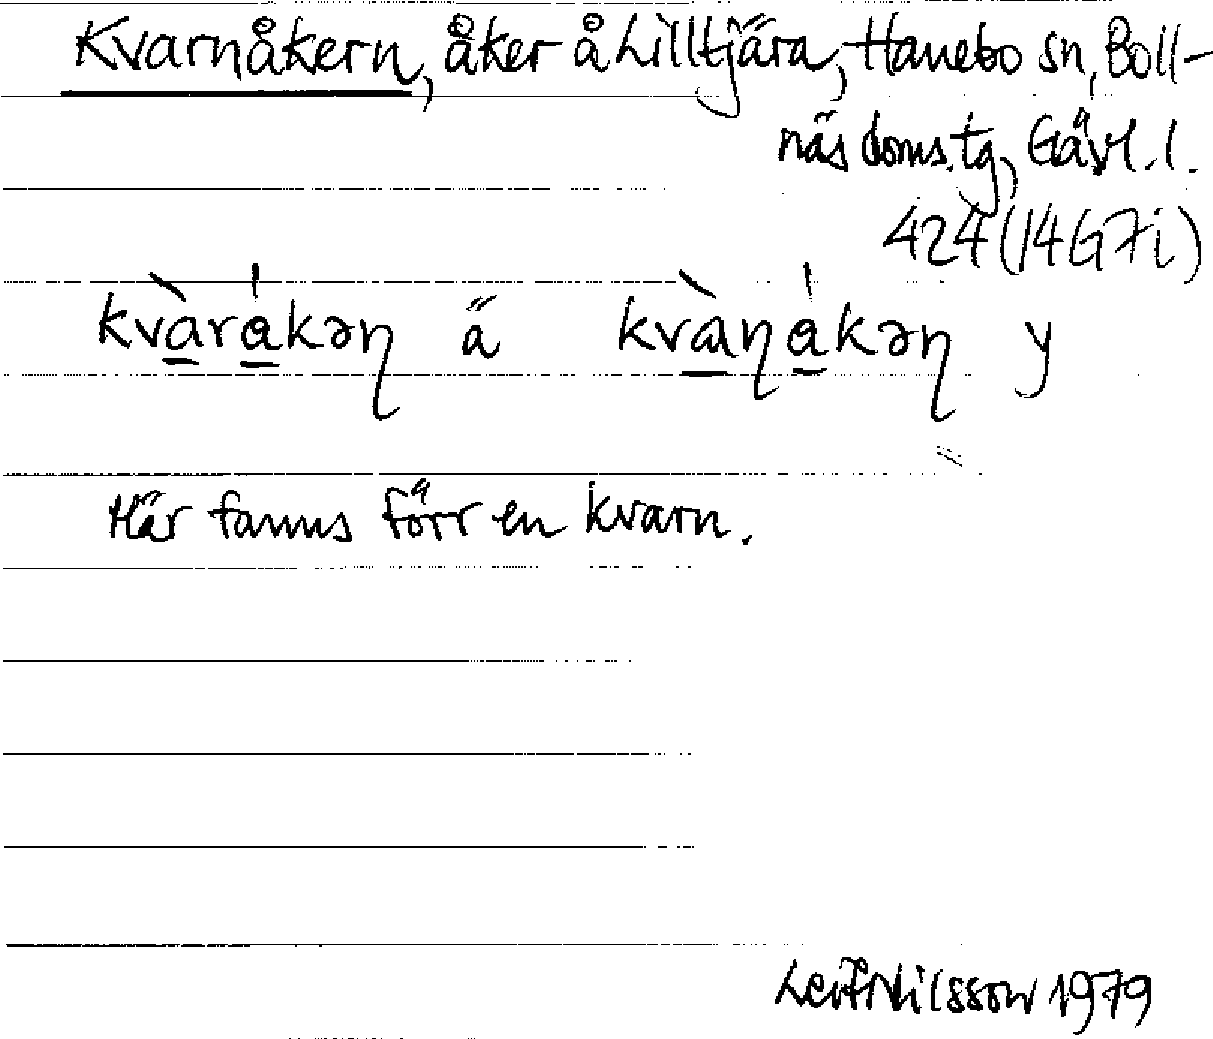 Kvarnåkern, åker å Lilltjära, Hanebo sn, Boll-
näs doms.tg, Gävl. l.
424 (14G7i)
kvàrákən ä kvànákən y
Här fanns förr en kvarn.
Leif Nilsson 1979